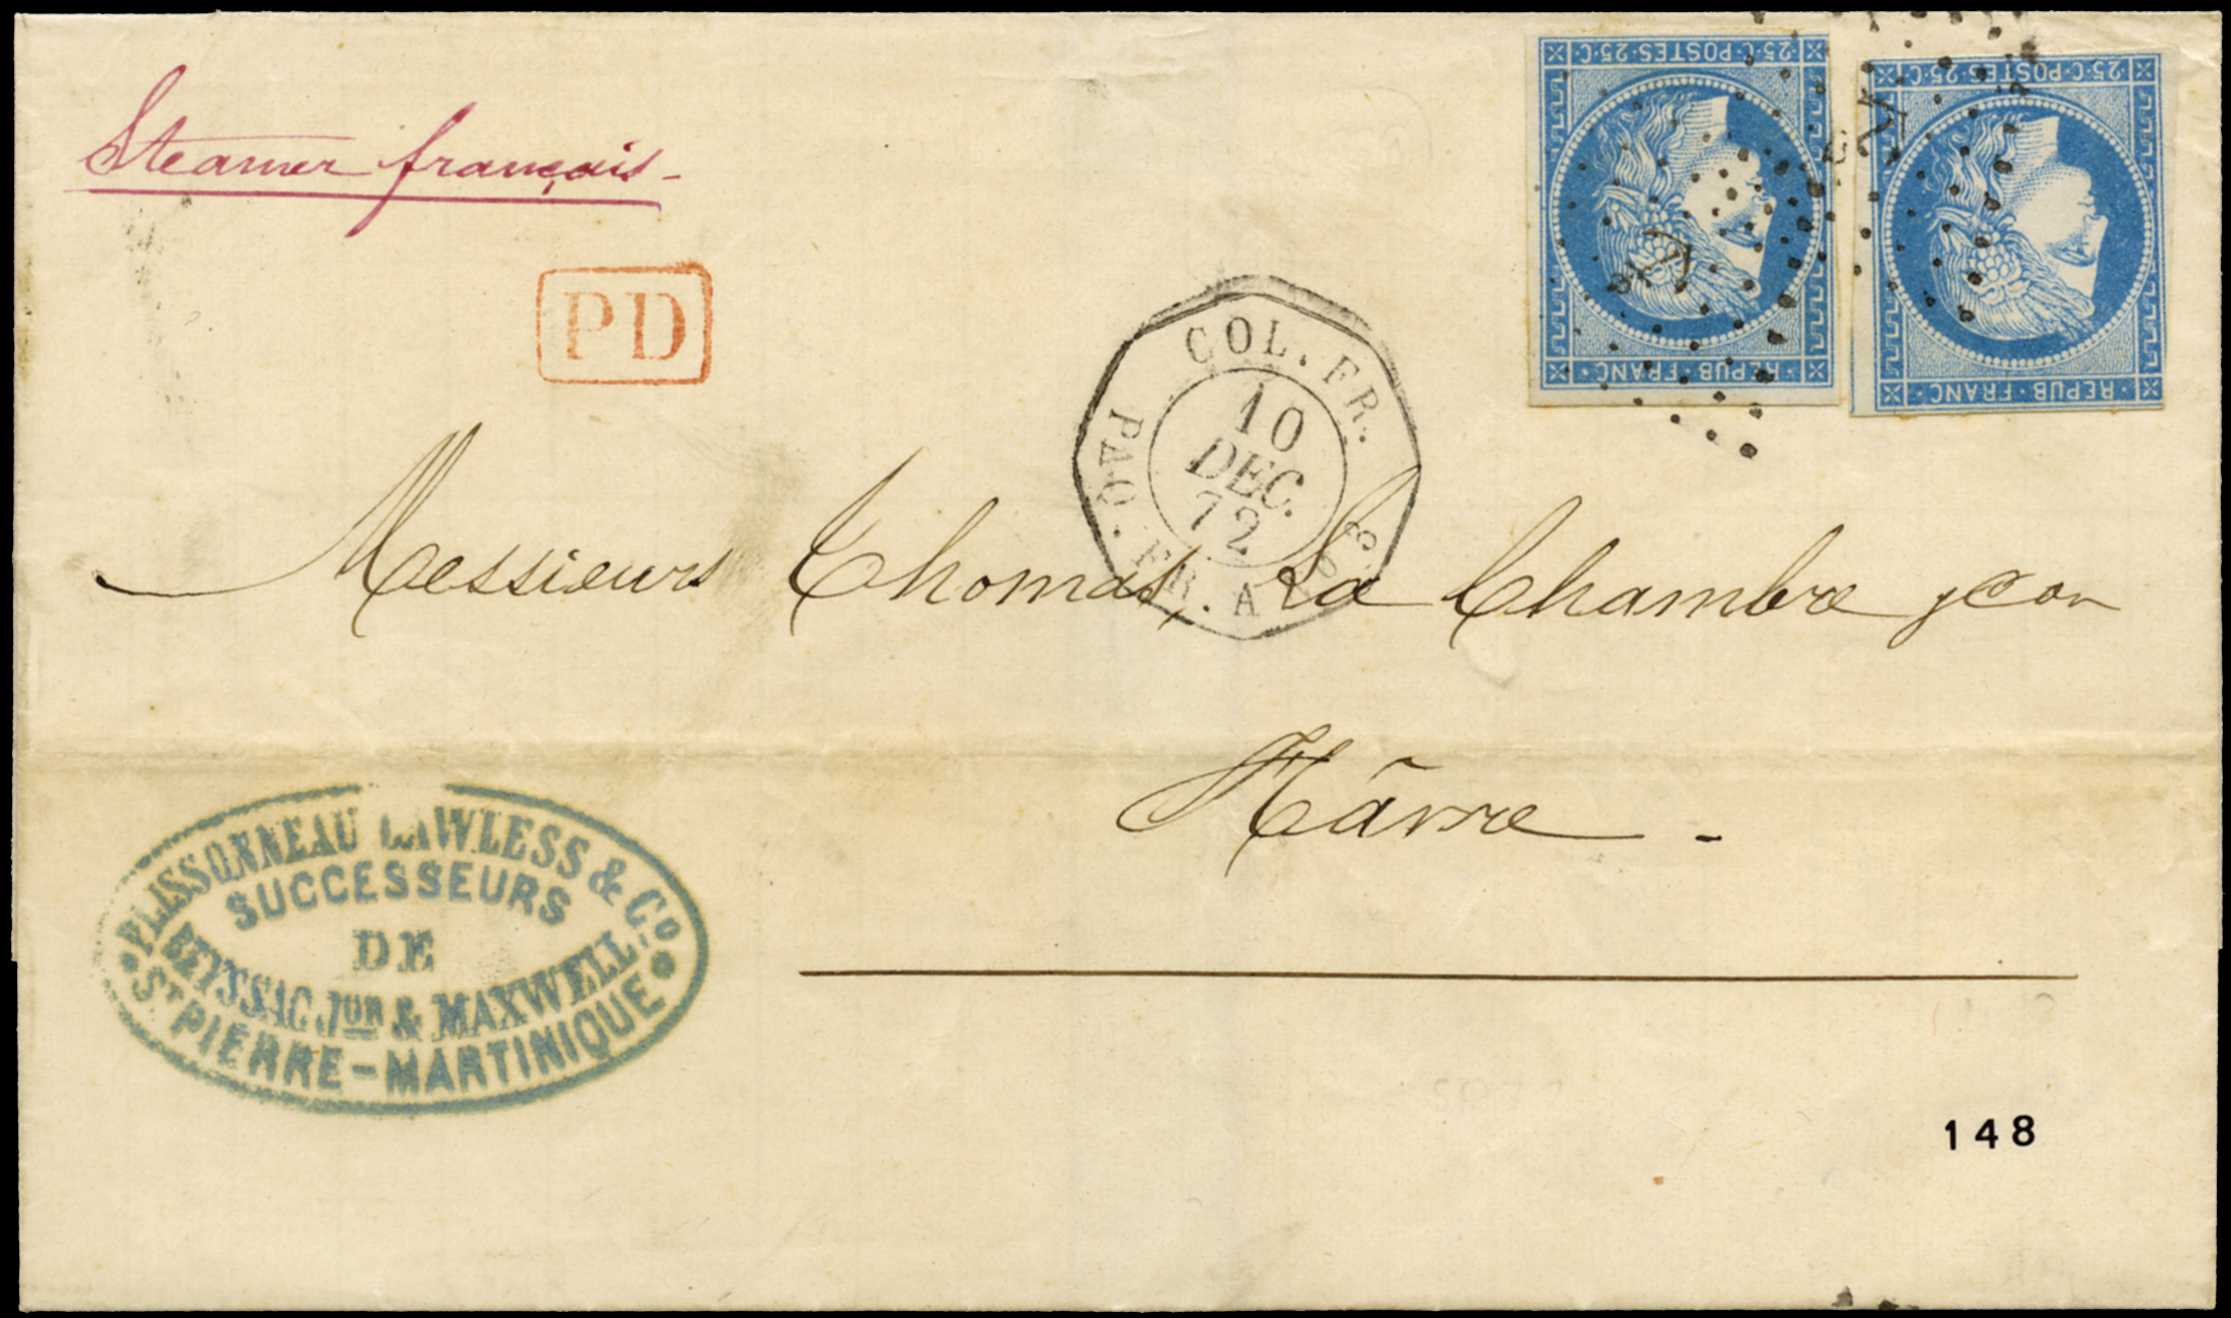 Steamer français
PD
25·C·POSTES·25·C
REPUB·FRANC
25·C·POSTES·25·C
REPUB·FRANC
COL. FR.
10
DEC.
72
PAQ. FR. A
Messieurs Thomas, La Chambre & Co
Hâvre.
PLISSONNEAU LAWLESS & Co.
SUCCESSEURS
DE
BEYSSAC, Jur & MAXWELL
ST PIERRE-MARTINIQUE
148